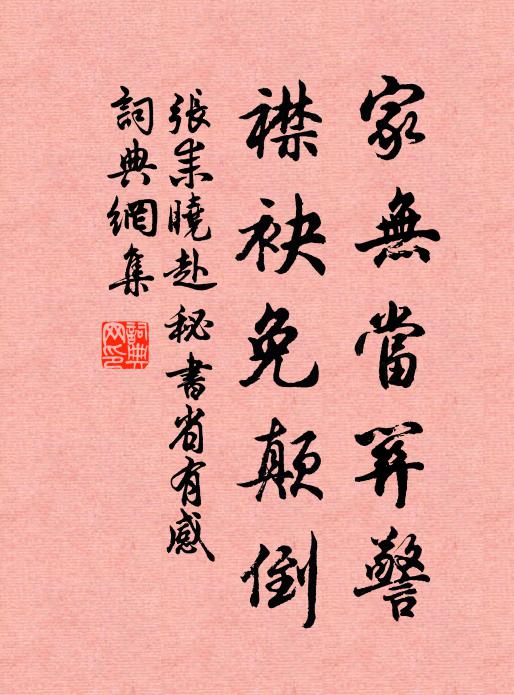 家無當關警
襟袂免顛倒
張耒曉赴秘書省有感
詞典網集
詞典网印